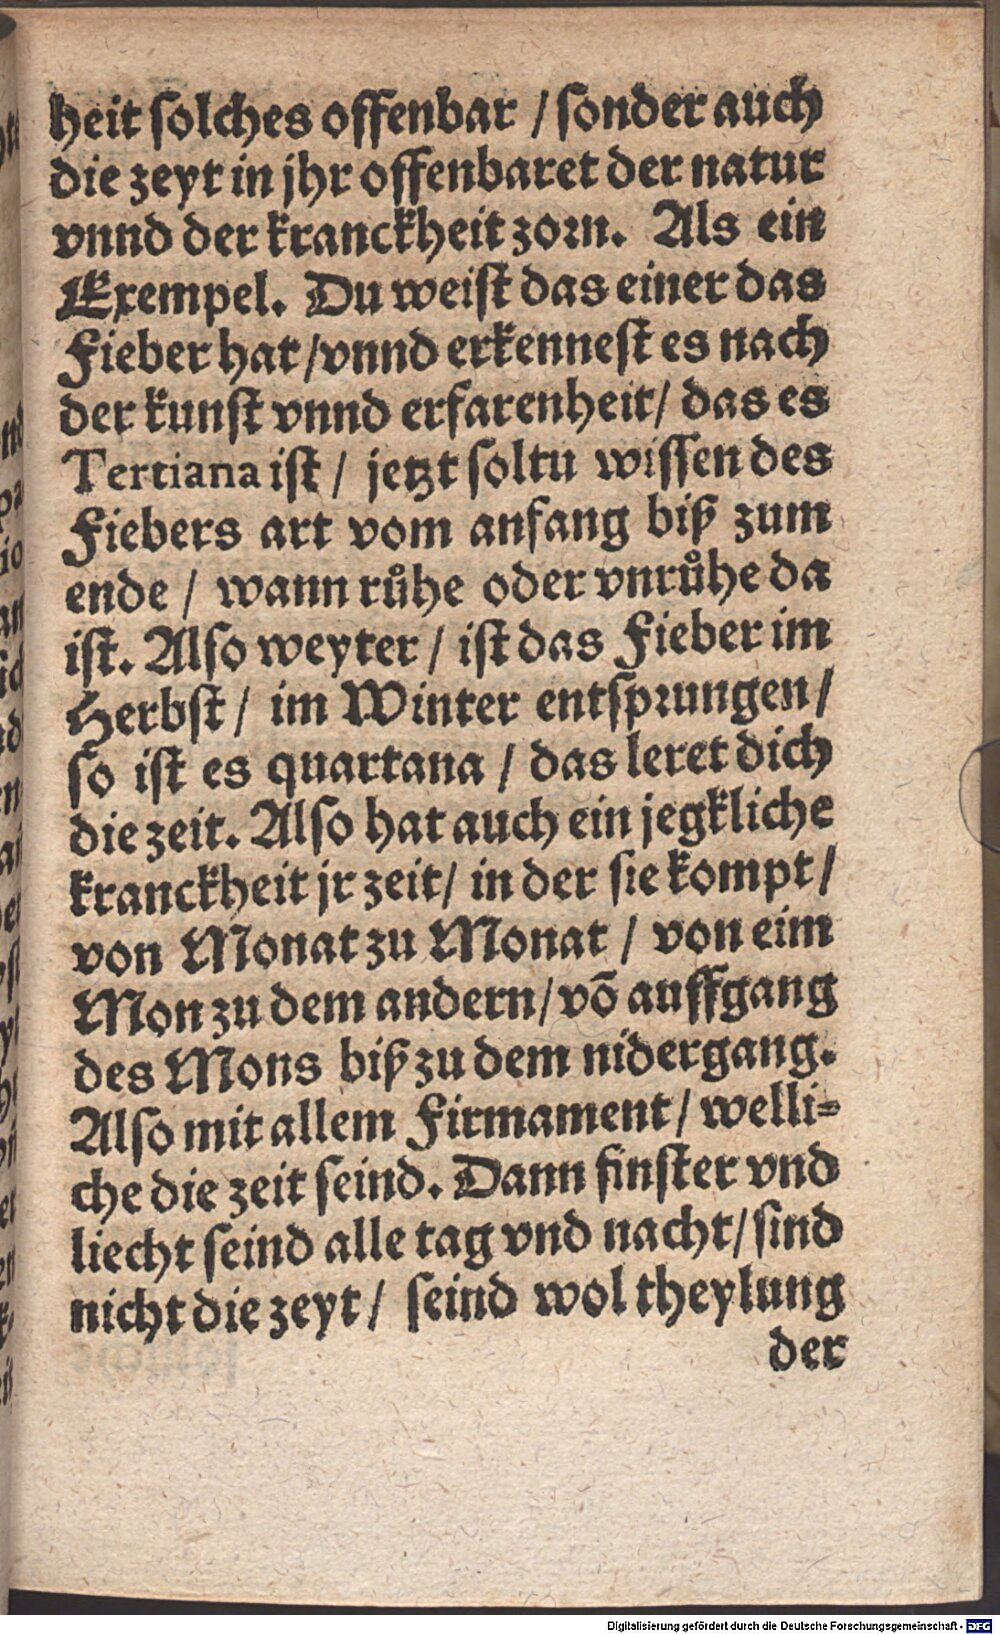 heit solches offenbar / sonder auch
die zeyt in jhr offenbaret der natur
vnnd der kranckheit zorn. Als ein
Exempel. Du weist das einer das
Fieber hat / vnnd erkennest es nach
der kunst vnnd erfarenheit / das es
Tertiana ist / jetzt soltu wissen des
Fiebers art vom anfang biß zum
ende / wann růhe oder vnrůhe da
ist. Also weyter / ist das Fieber im
Herbst / im Winter entsprungen /
so ist es quartana / das leret dich
die zeit. Also hat auch ein jegkliche
kranckheit jr zeit / in der sie kompt /
von Monat zu Monat / von eim
Mon zu dem andern / võ auffgang
des Mons biß zu dem nidergang.
Also mit allem Firmament / welli=
che die zeit seind. Dann finster vnd
liecht seind alle tag vnd nacht / sind
nicht die zeyt / seind wol theylung
der
Digitalisierung gefördert durch die Deutsche Forschungsgemeinschaft - DFG